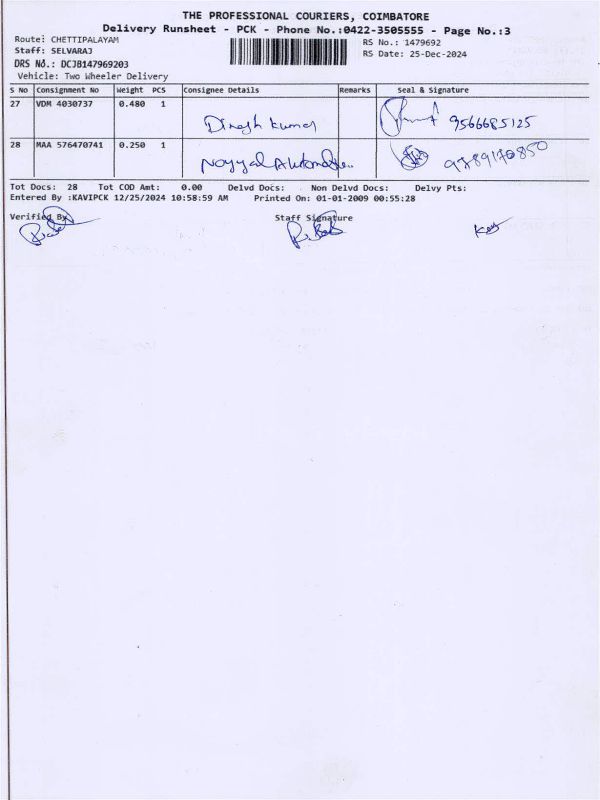 THE PROFESSIONAL COURIERS, COIMBATORE
Delivery Runsheet - PCK - Phone No.:0422-3505555 - Page No.:3
Route: CHETTIPALAYAM
RS No.: 1479692
Staff: SELVARAJ
RS Date: 25-Dec-2024
DRS No.: DCJB147969203
Vehicle: Two Wheeler Delivery
S No Consignment No Weight PCS Consignee Details Remarks Seal & Signature
27 VDM 4030737 0.480 1 Dinesh Kumar 9566685125
28 MAA 576470741 0.250 1 Noyyal 9789170850
Tot Docs: 28 Tot COD Amt: 0.00 Delvd Docs: Non Delvd Docs: Delvy Pts:
Entered By :KAVIPCK 12/25/2024 10:58:59 AM Printed On: 01-01-2009 00:55:28
Verified By Staff Signature